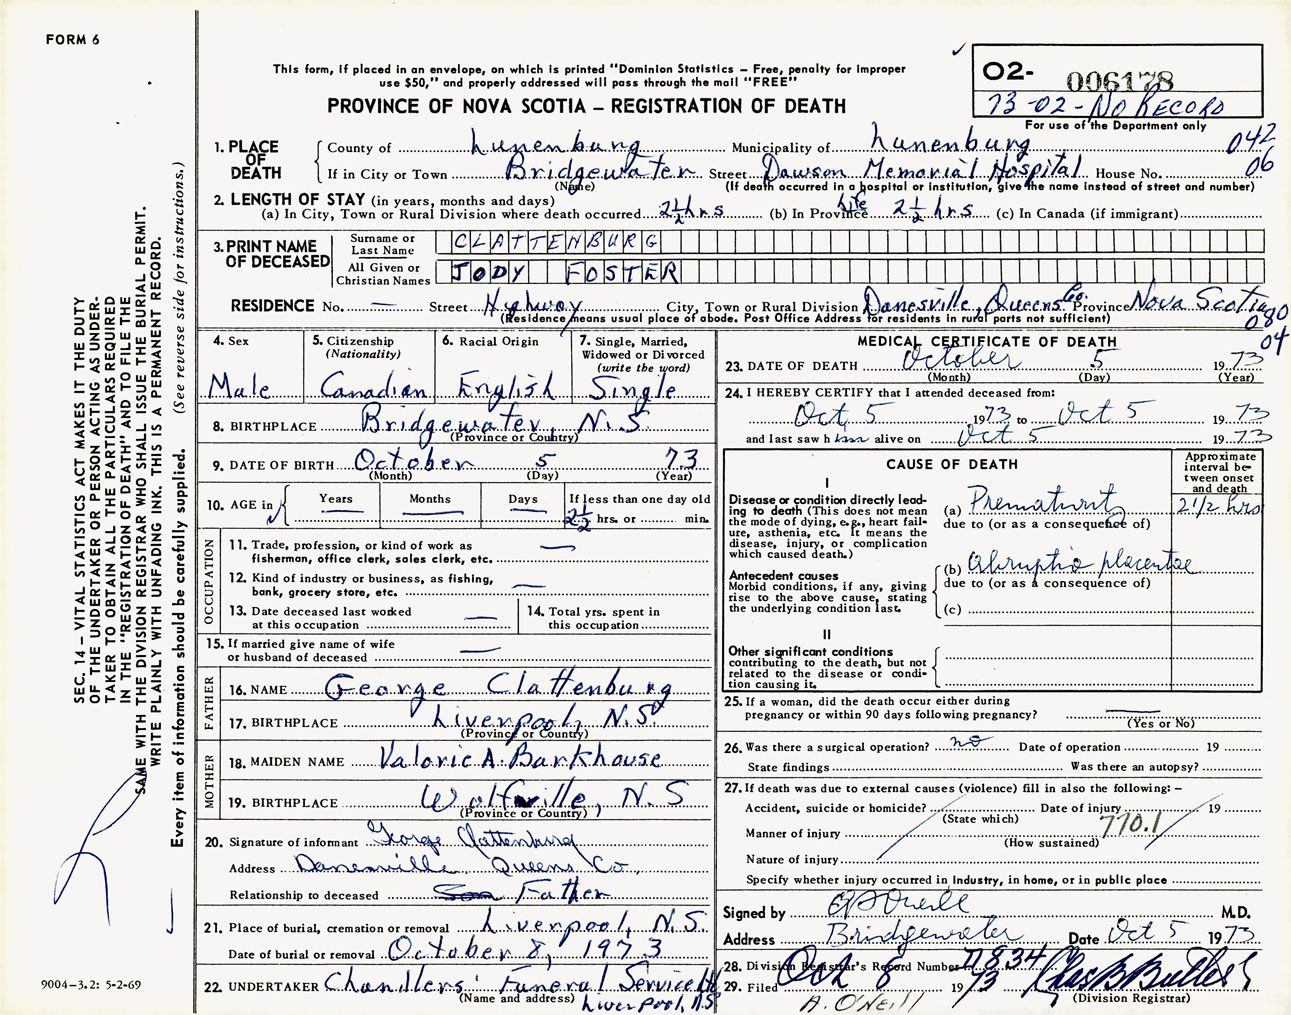 FORM 6
This form, if placed in an envelope, on which is printed "Dominion Statistics – Free, penalty for improper
use $50," and properly addressed will pass through the mail "FREE"
PROVINCE OF NOVA SCOTIA – REGISTRATION OF DEATH
02- 006178
73-02-NO RECORD
For use of the Department only
1. PLACE OF DEATH
County of Lunenburg Municipality of Lunenburg 042
If in City or Town Bridgewater Street Dawson Memorial Hospital House No. 06
(Name) (If death occurred in a hospital or institution, give the name instead of street and number)
2. LENGTH OF STAY (in years, months and days)
(a) In City, Town or Rural Division where death occurred 2½ hrs (b) In Province life 2½ hrs (c) In Canada (if immigrant)
3. PRINT NAME OF DECEASED
Surname or Last Name CLATTENBURG
All Given or Christian Names JODY FOSTER
RESIDENCE No. — Street Highway City, Town or Rural Division Danesville, Queens Co. Province Nova Scotia
(Residence means usual place of abode. Post Office Address for residents in rural parts not sufficient)
080
04
4. Sex
Male
5. Citizenship
(Nationality)
Canadian
6. Racial Origin
English
7. Single, Married,
Widowed or Divorced
(write the word)
Single
8. BIRTHPLACE Bridgewater, N.S.
(Province or Country)
9. DATE OF BIRTH October 5 73
(Month) (Day) (Year)
10. AGE in Years Months Days If less than one day old
2½ hrs. or min.
OCCUPATION
11. Trade, profession, or kind of work as
fisherman, office clerk, sales clerk, etc. —
12. Kind of industry or business, as fishing,
bank, grocery store, etc. —
13. Date deceased last worked
at this occupation —
14. Total yrs. spent in
this occupation
15. If married give name of wife
or husband of deceased —
FATHER
16. NAME George Clattenburg
17. BIRTHPLACE Liverpool, N.S.
(Province or Country)
MOTHER
18. MAIDEN NAME Valorie A. Barkhouse
19. BIRTHPLACE Wolfville, N.S
(Province or Country)
20. Signature of informant George Clattenburg
Address Danesville Queens Co.
Relationship to deceased Son Father
21. Place of burial, cremation or removal Liverpool, N.S.
Date of burial or removal October 8, 1973
22. UNDERTAKER Chandlers' Funeral Service
(Name and address) Liverpool, N.S.
MEDICAL CERTIFICATE OF DEATH
23. DATE OF DEATH October 5 1973
(Month) (Day) (Year)
24. I HEREBY CERTIFY that I attended deceased from:
Oct 5 1973 to Oct 5 1973
and last saw him alive on Oct 5 1973
CAUSE OF DEATH
Approximate
interval be-
tween onset
and death
I
Disease or condition directly lead-
ing to death (This does not mean
the mode of dying, e.g., heart fail-
ure, asthenia, etc. It means the
disease, injury, or complication
which caused death.)
(a) Prematurity 2 1/2 hrs
due to (or as a consequence of)
Antecedent causes
Morbid conditions, if any, giving
rise to the above cause, stating
the underlying condition last.
(b) Abruptio placentae
due to (or as a consequence of)
(c)
II
Other significant conditions
contributing to the death, but not
related to the disease or condi-
tion causing it.
25. If a woman, did the death occur either during
pregnancy or within 90 days following pregnancy? —
(Yes or No)
26. Was there a surgical operation? no Date of operation 19
State findings Was there an autopsy?
27. If death was due to external causes (violence) fill in also the following: –
Accident, suicide or homicide? Date of injury 19
(State which)
770.1
Manner of injury
(How sustained)
Nature of injury
Specify whether injury occurred in industry, in home, or in public place
Signed by O'Neill M.D.
Address Bridgewater Date Oct 5 1973
28. Division Registrar's Record Number 7834
29. Filed Oct 8 1973
(Division Registrar)
A. O'Neill
SEC. 14 – VITAL STATISTICS ACT MAKES IT THE DUTY
OF THE UNDERTAKER OR PERSON ACTING AS UNDER-
TAKER TO OBTAIN ALL THE PARTICULARS REQUIRED
IN THE "REGISTRATION OF DEATH" AND TO FILE THE
SAME WITH THE DIVISION REGISTRAR WHO SHALL ISSUE THE BURIAL PERMIT.
WRITE PLAINLY WITH UNFADING INK. THIS IS A PERMANENT RECORD.
Every item of information should be carefully supplied. (See reverse side for instructions.)
9004-3.2: 5-2-69